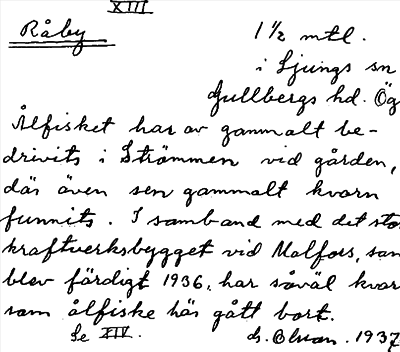 XIII
Råby 1 1/2 mtl.
i Ljungs sn
Gullbergs hd. Ög
Ålfisket har av gammalt be-
drivits i Strömmen vid gården,
där även sen gammalt kvarn
funnits. I samband med det stor
kraftverksbygget vid Malfors, som
blev färdigt 1936, har såväl kvar
som ålfiske här gått bort.
Se XIV.
1937